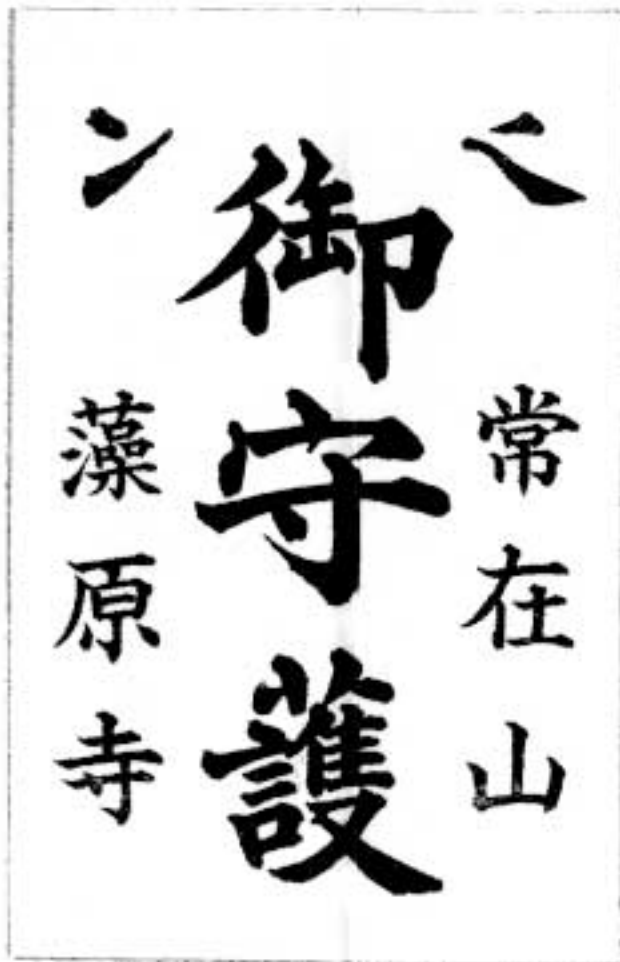 常在山
御守護
藻原寺